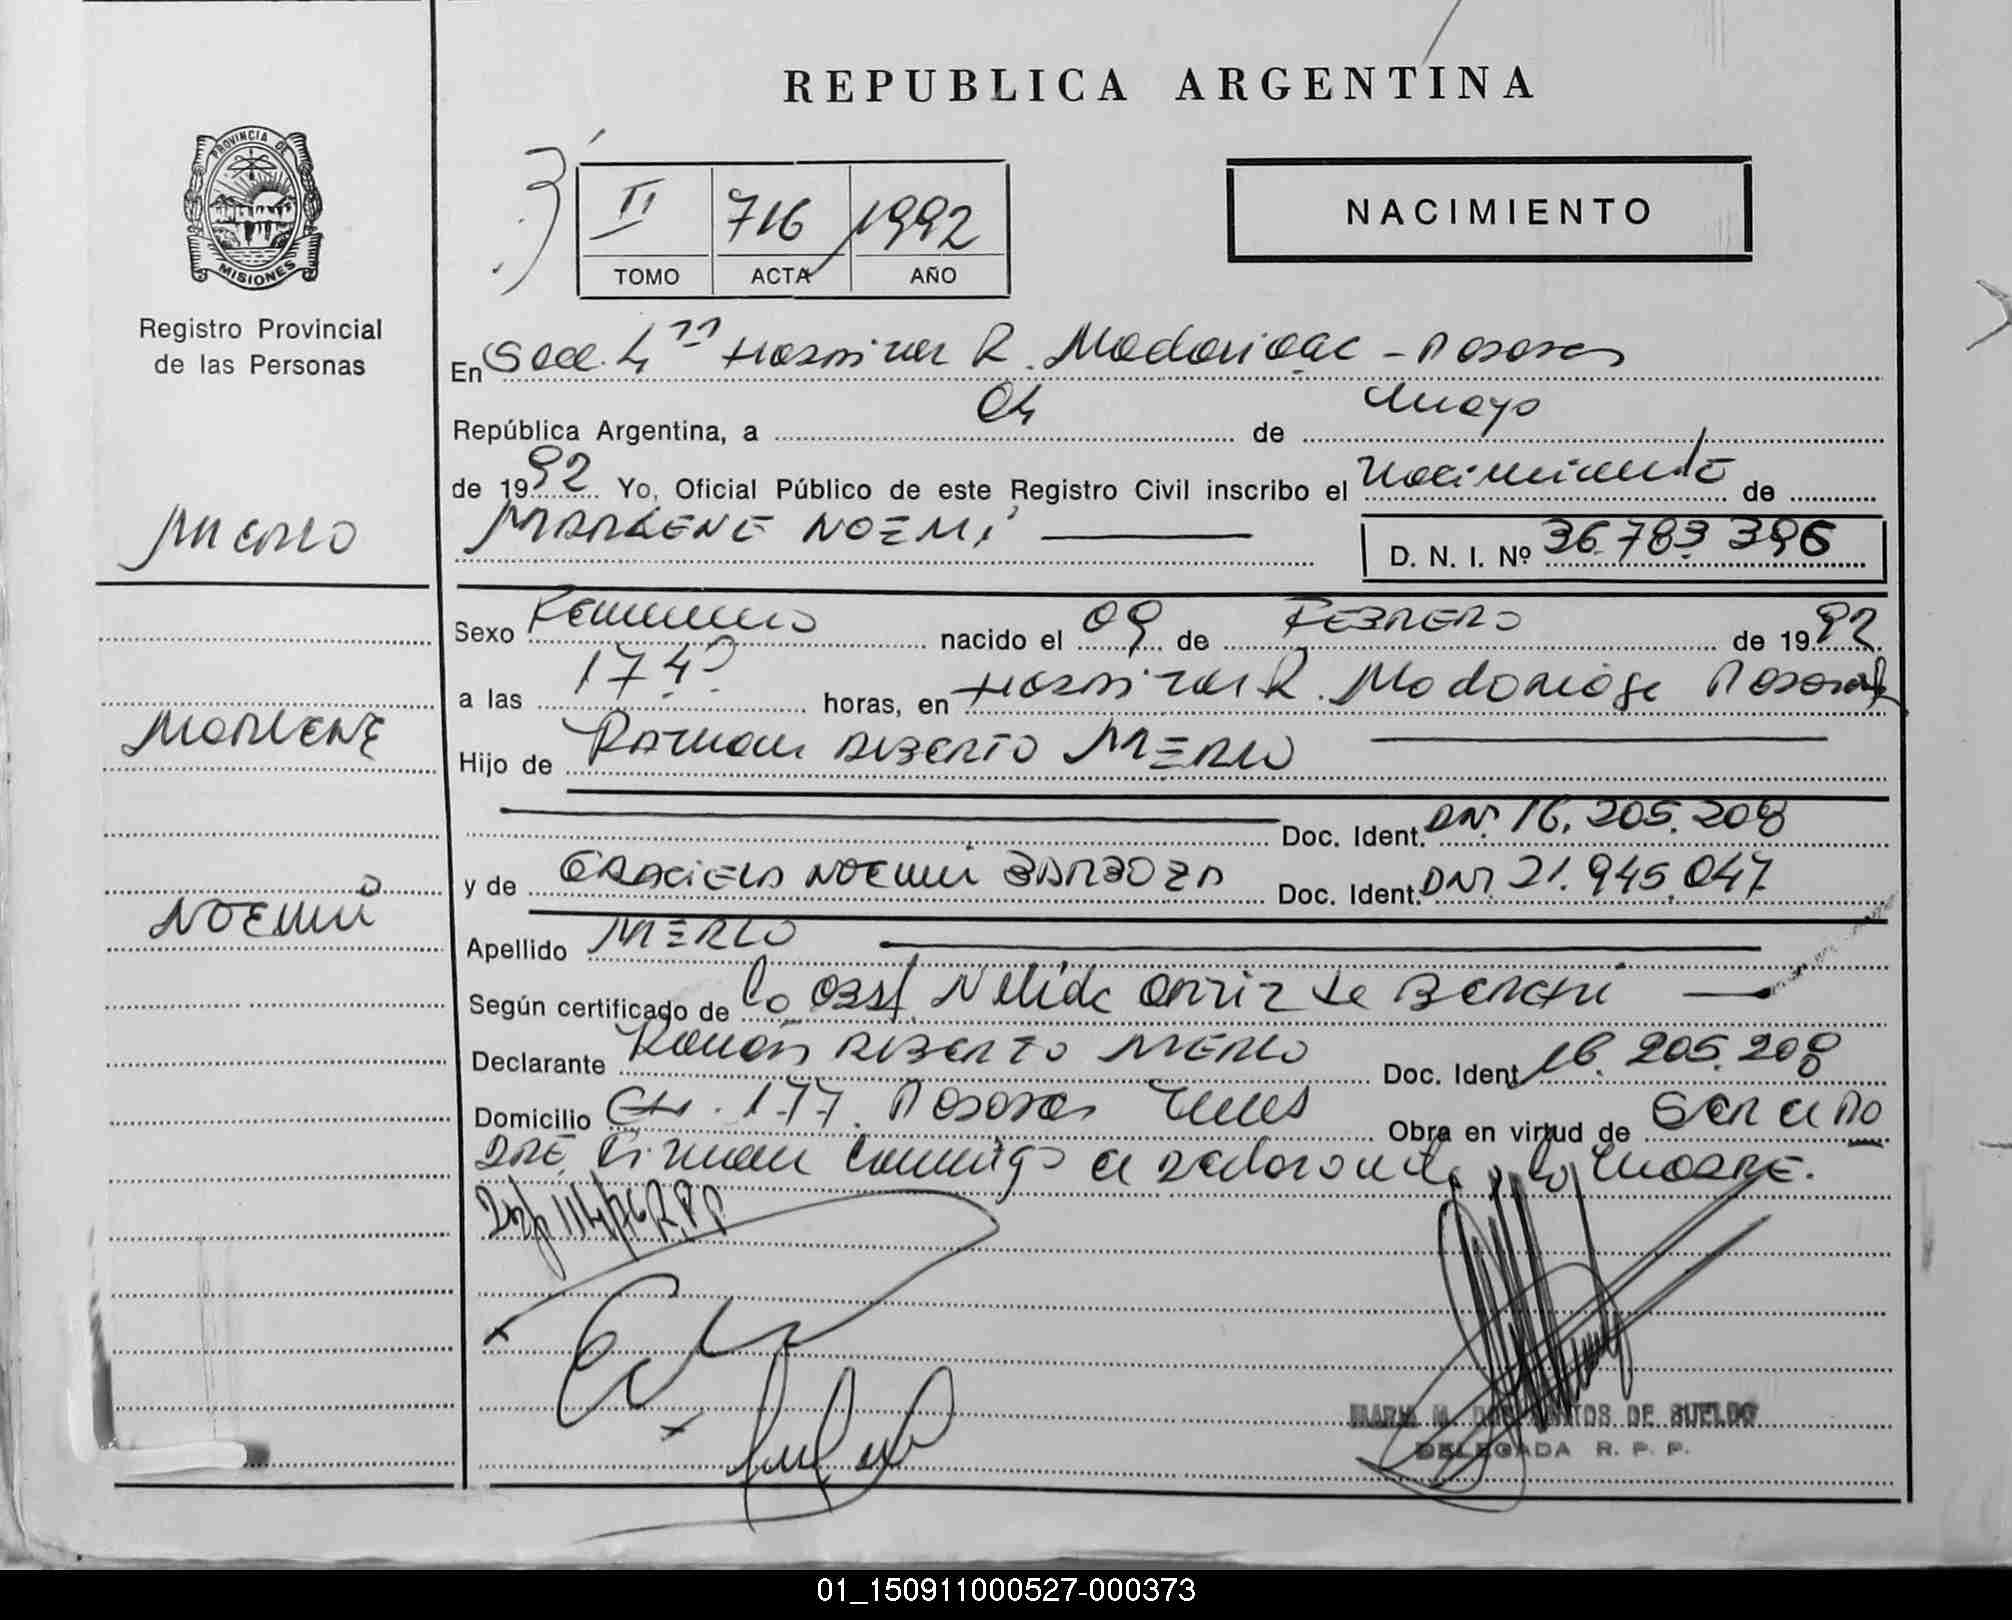 REPUBLICA ARGENTINA
PROVINCIA DE
MISIONES
Registro Provincial
de las Personas
II 716 1992
TOMO ACTA AÑO
NACIMIENTO
En Secc. 4ta Hospital R. Madariaga - Posadas
República Argentina, a 04 de Mayo
de 1992 Yo, Oficial Público de este Registro Civil inscribo el Nacimiento de
MARLENE NOEMí
D. N. I. Nº 36.783.396
MERLO
MARLENE
NOEMÍ
Sexo Femenino nacido el 09 de FEBRERO de 1992
a las 17 40 horas, en Hospital R. Madariaga Posadas
Hijo de Ramon ALBERTO MERLO
Doc. Ident. DNI. 16.205.208
y de GRACIELA NOEMí BARBOZA Doc. Ident. DNI 21.945.047
Apellido MERLO
Según certificado de la Obst. Nelida
Declarante Ramón ALBERTO MERLO Doc. Ident 16.205.208
Domicilio Ch. 177. Posadas Mnes Obra en virtud de SER EL PA
DRE. Firman conmigo el declarante y la MADRE.
MARIA M. DOS SANTOS DE SUELDO
DELEGADA R. P. P.
01_150911000527-000373